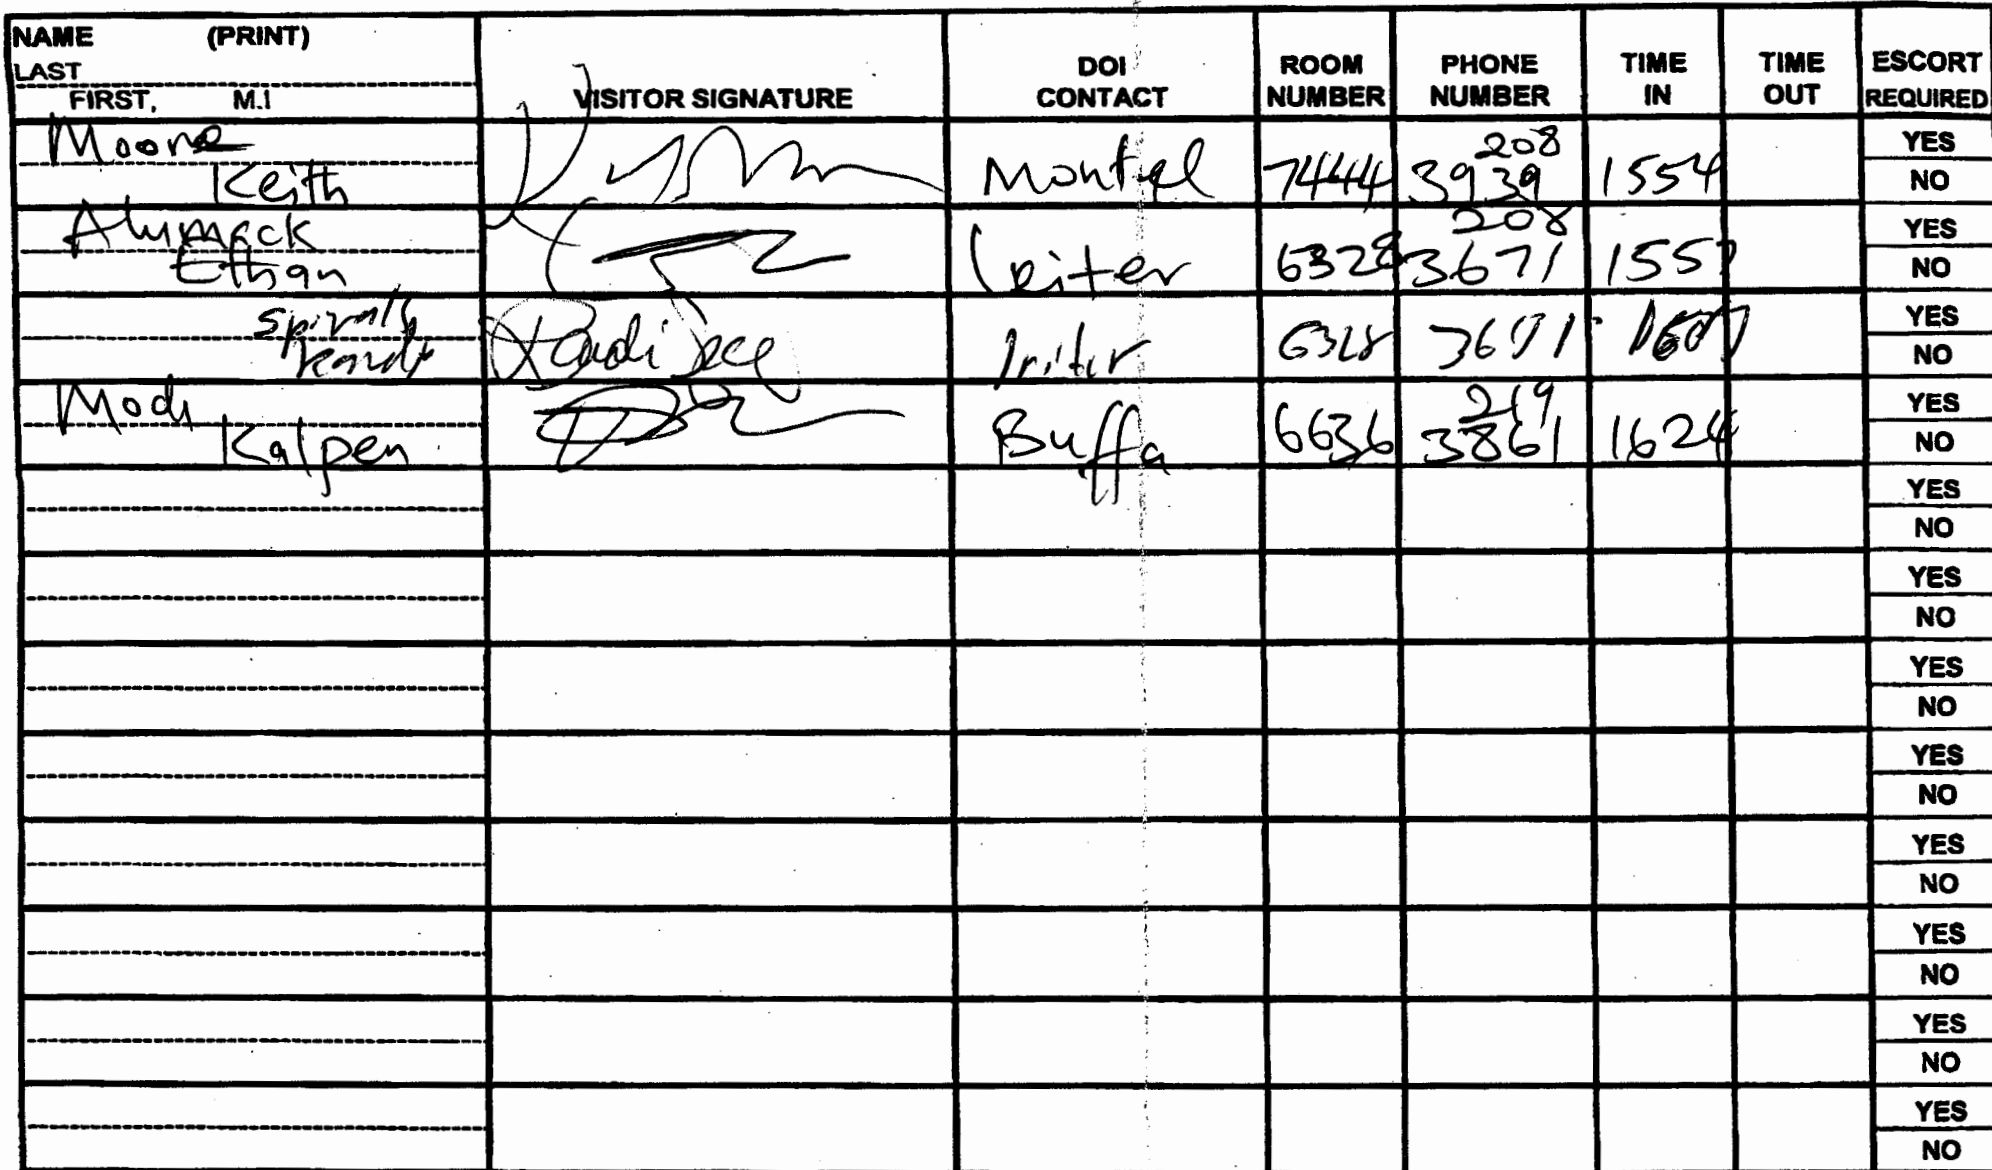 NAME (PRINT)
LAST
FIRST, M.I
VISITOR SIGNATURE
DOI CONTACT
ROOM NUMBER
PHONE NUMBER
TIME IN
TIME OUT
ESCORT REQUIRED
Moore Keith Montel 7444 208 3939 1554 YES NO
Ethan Leiter 6328 208 3671 YES NO
6328 3671 YES NO
Modi Kalpen Buffa 6636 219 3861 1624 YES NO
YES
NO
YES
NO
YES
NO
YES
NO
YES
NO
YES
NO
YES
NO
YES
NO